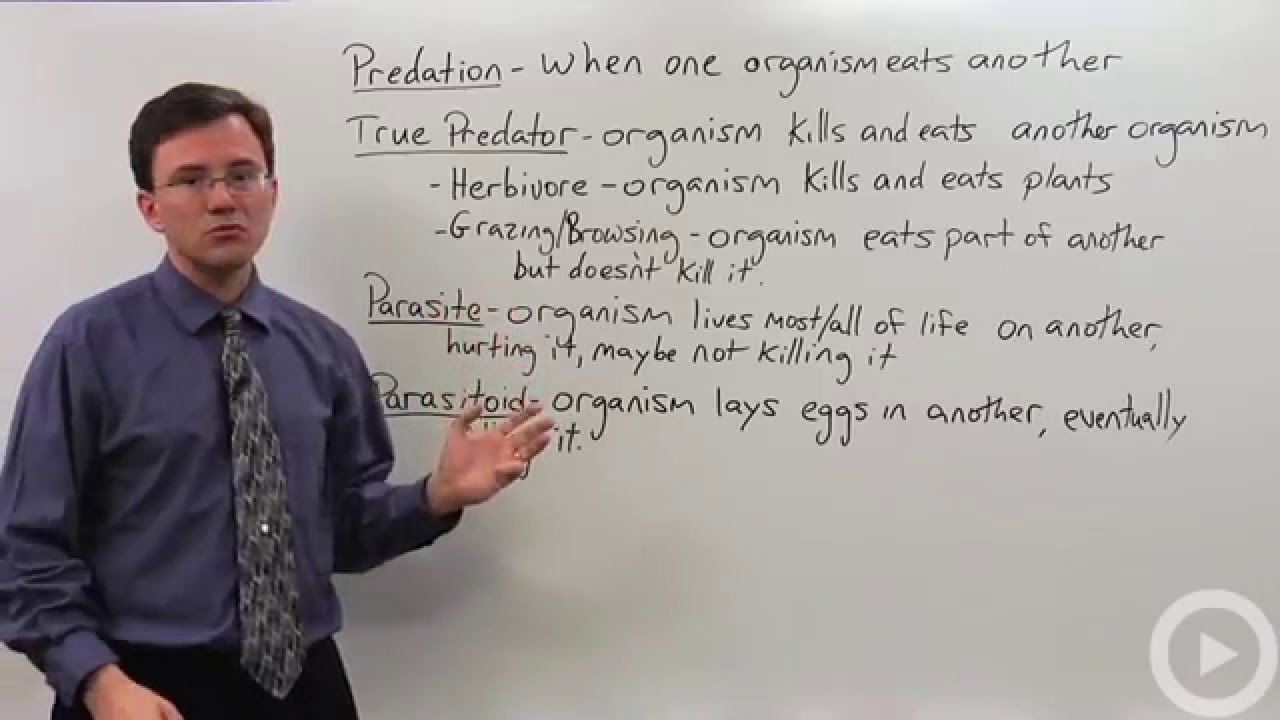 Predation - When one organism eats another
True Predator - organism kills and eats another organism
- Herbivore - organism kills and eats plants
- Grazing/Browsing - organism eats part of another
but doesn't kill it.
Parasite - organism lives most/all of life on another,
hurting it, maybe not killing it
Parasitoid - organism lays eggs in another, eventually
it.